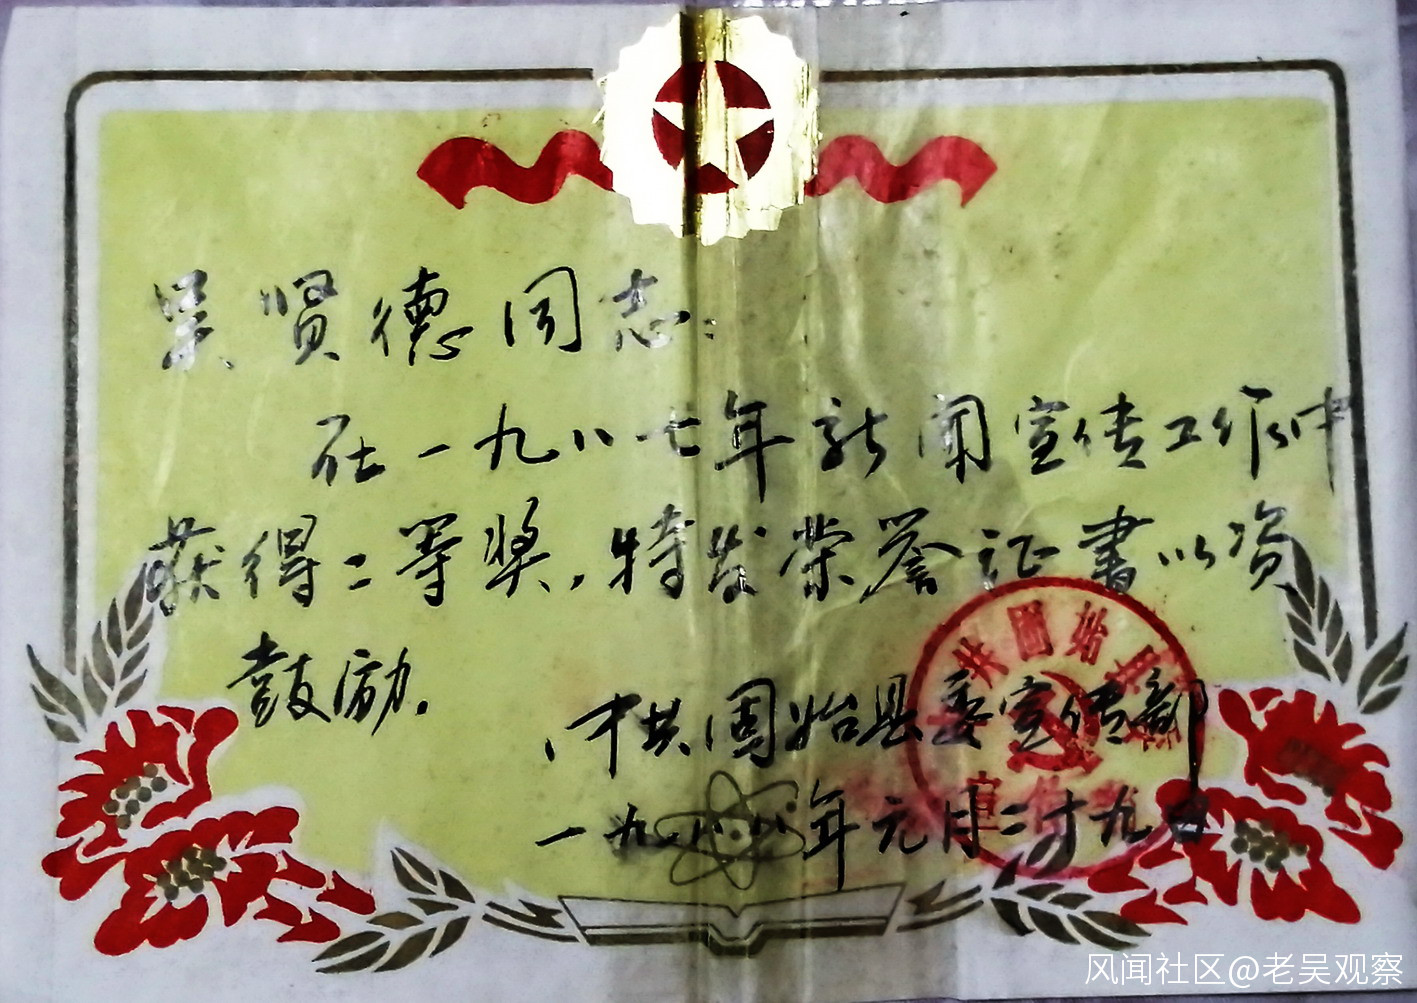 吴贤德同志:
在一九八七年新闻宣传工作中
获得二等奖,特发荣誉证书以资
鼓励.
中共固始县委宣传部
一九八八年元月二十九日
共固始县
宣传
风闻社区@老吴观察